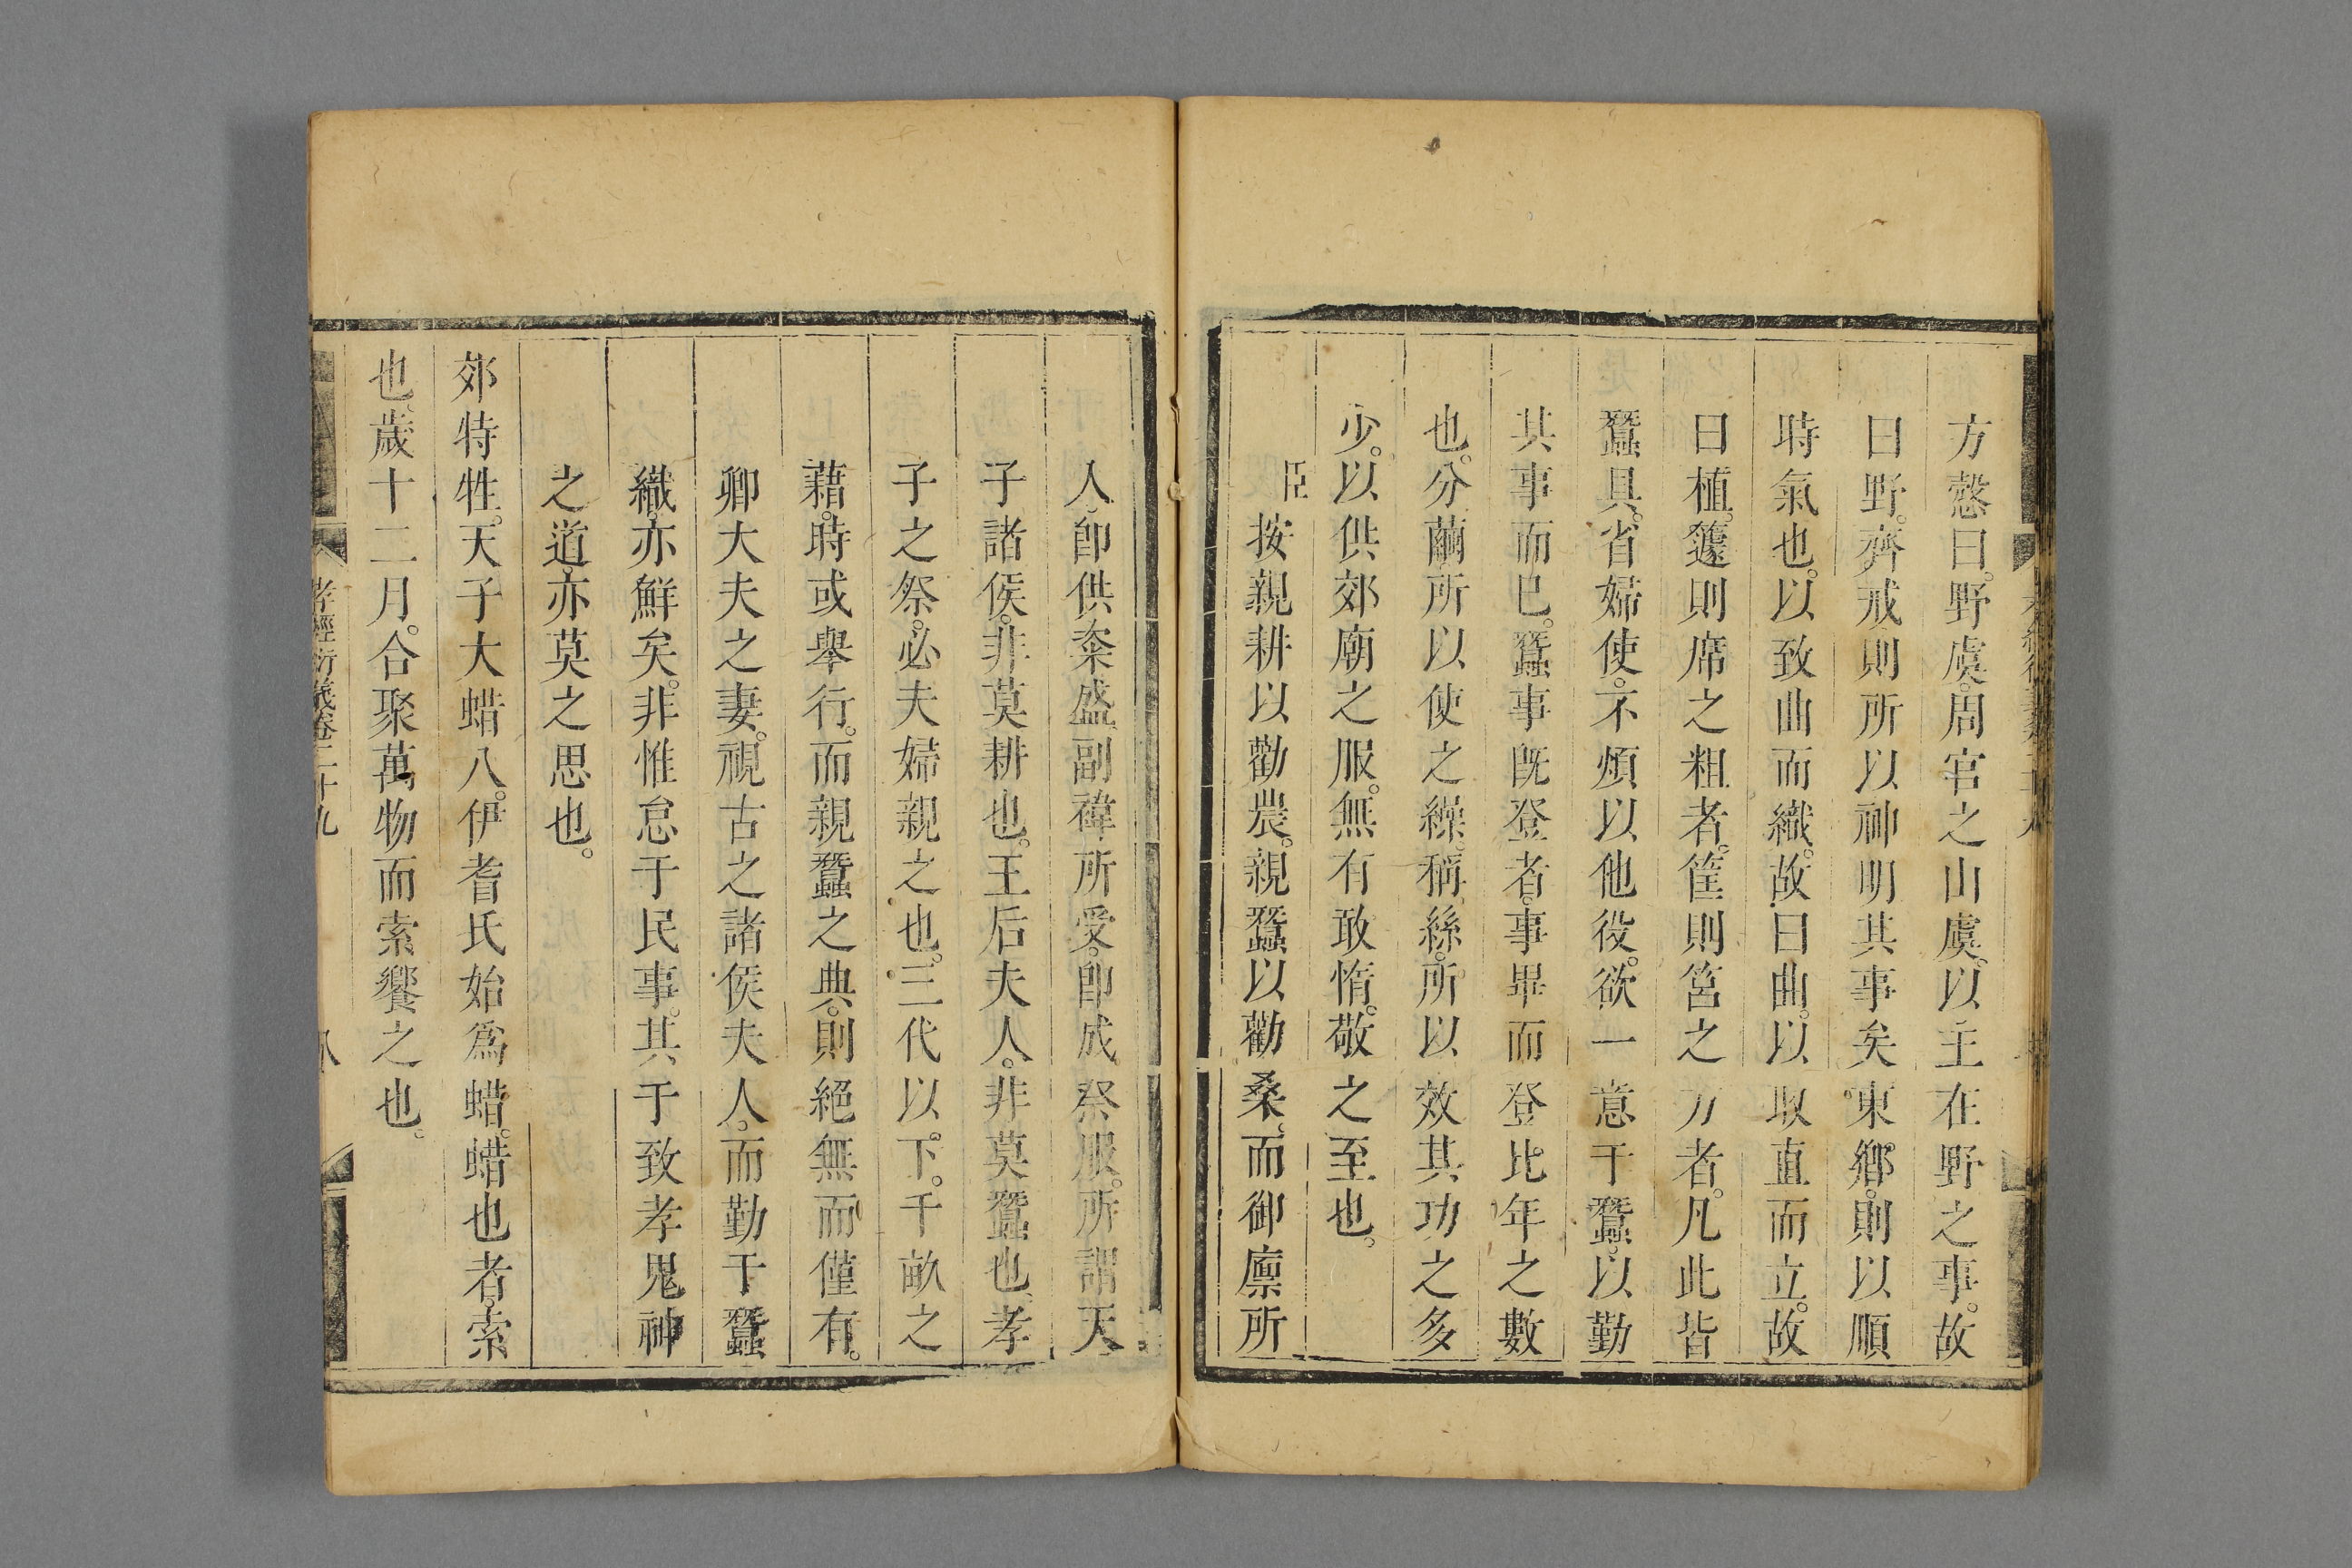 方慤曰。野虞。周官之山虞。以主在野之事。故
曰野。齊戒則所以神明其事矣。東鄉。則以順
時氣也。以致曲而織。故曰曲。以取直而立。故
曰植。籧則席之粗者。筐則筥之方者。凡此皆
蠶具。省婦使。不煩以他役。欲一意于蠶。以勤
其事而已。蠶事既登者。事畢而登比年之數
也。分繭所以使之繅。稱絲。所以效其功之多
少。以供郊廟之服。無有敢惰。敬之至也。
臣按親耕以勸農。親蠶以勸桑。而御廩所
入。卽供粢盛。副褘所受。卽成祭服。所謂天
子諸侯。非莫耕也。王后夫人。非莫蠶也。孝
子之祭。必夫婦親之也。三代以下。千畝之
藉。時或舉行。而親蠶之典。則絕無而僅有。
卿大夫之妻。視古之諸侯夫人。而勤于蠶
織。亦鮮矣。非惟怠于民事。其于致孝鬼神
之道。亦莫之思也。
郊特牲。天子大蜡八。伊耆氏始爲蜡。蜡也者。索
也。歲十二月。合聚萬物而索饗之也。
孝經衍義卷二十九　八